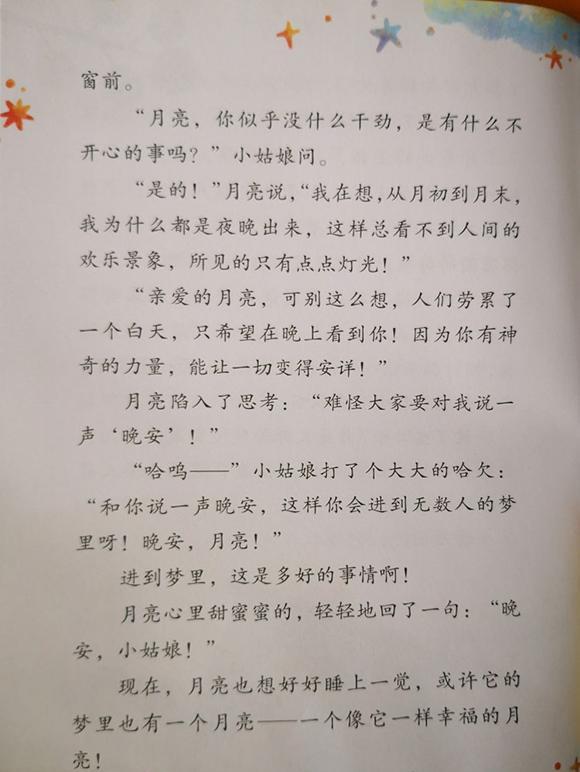 窗前。
“月亮，你似乎没什么干劲，是有什么不
开心的事吗？”小姑娘问。
“是的！”月亮说，“我在想，从月初到月末，
我为什么都是夜晚出来，这样总看不到人间的
欢乐景象，所见的只有点点灯光！”
“亲爱的月亮，可别这么想，人们劳累了
一个白天，只希望在晚上看到你！因为你有神
奇的力量，能让一切变得安详！”
月亮陷入了思考：“难怪大家要对我说一
声‘晚安’！”
“哈呜——”小姑娘打了个大大的哈欠：
“和你说一声晚安，这样你会进到无数人的梦
里呀！晚安，月亮！”
进到梦里，这是多好的事情啊！
月亮心里甜蜜蜜的，轻轻地回了一句：“晚
安，小姑娘！”
现在，月亮也想好好睡上一觉，或许它的
梦里也有一个月亮——一个像它一样幸福的月
亮！